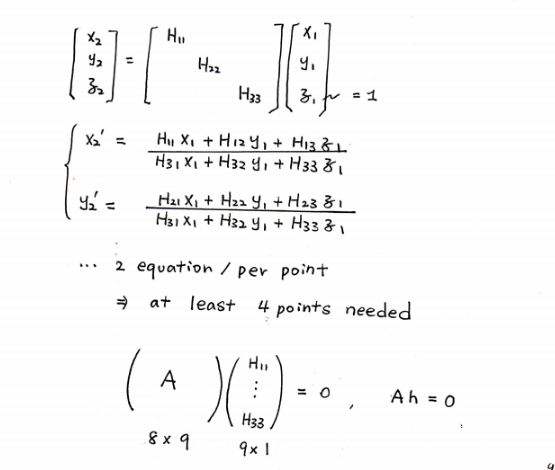 [ x₂ y₂ z₂ ] = [ H₁₁ H₂₂ H₃₃ ] [ x₁ y₁ z₁ ] = 1
{ x₂' = (H₁₁ x₁ + H₁₂ y₁ + H₁₃ z₁) / (H₃₁ x₁ + H₃₂ y₁ + H₃₃ z₁)
y₂' = (H₂₁ x₁ + H₂₂ y₁ + H₂₃ z₁) / (H₃₁ x₁ + H₃₂ y₁ + H₃₃ z₁)
... 2 equation / per point
⇒ at least 4 points needed
( A ) ( H₁₁ ⋮ H₃₃ ) = 0 , Ah = 0
8 × 9 9 × 1